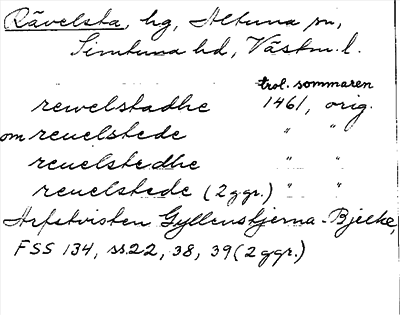 Rävelsta, hg, Altuna sn,
Simtuna hd, Västm. l.
trol. sommaren
rewelstadhe 1461, orig.
om reuelstede " "
reuelstedhe " "
reuelstede (2 ggr.) " "
Arfstvisten Gyllenstjerna-Bjelke,
FSS 134, ss. 22, 38, 39 (2 ggr.)